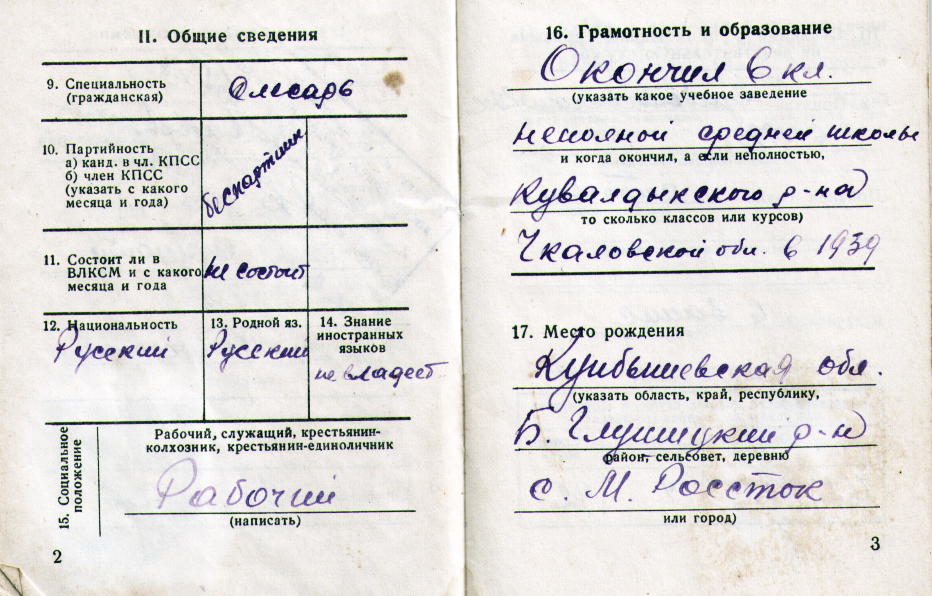 II. Общие сведения
9. Специальность
(гражданская)
Слесарь
10. Партийность
а) канд. в чл. КПСС
б) член КПСС
(указать с какого
месяца и года)
беспартийн
11. Состоит ли в
ВЛКСМ и с какого
месяца и года
не состоит
12. Национальность
Русский
13. Родной яз.
Русский
14. Знание
иностранных
языков
не владеет
15. Социальное
положение
Рабочий, служащий, крестьянин-
колхозник, крестьянин-единоличник
Рабочий
(написать)
2
16. Грамотность и образование
Окончил 6 кл.
(указать какое учебное заведение
неполной средней школы
и когда окончил, а если неполностью,
Кувалдыкского р-на
то сколько классов или курсов)
Чкаловской обл. в 1939
17. Место рождения
Куйбышевская обл.
(указать область, край, республику,
Б. Глушицкий р-н
район, сельсовет, деревню
с. М. Россток
или город)
3